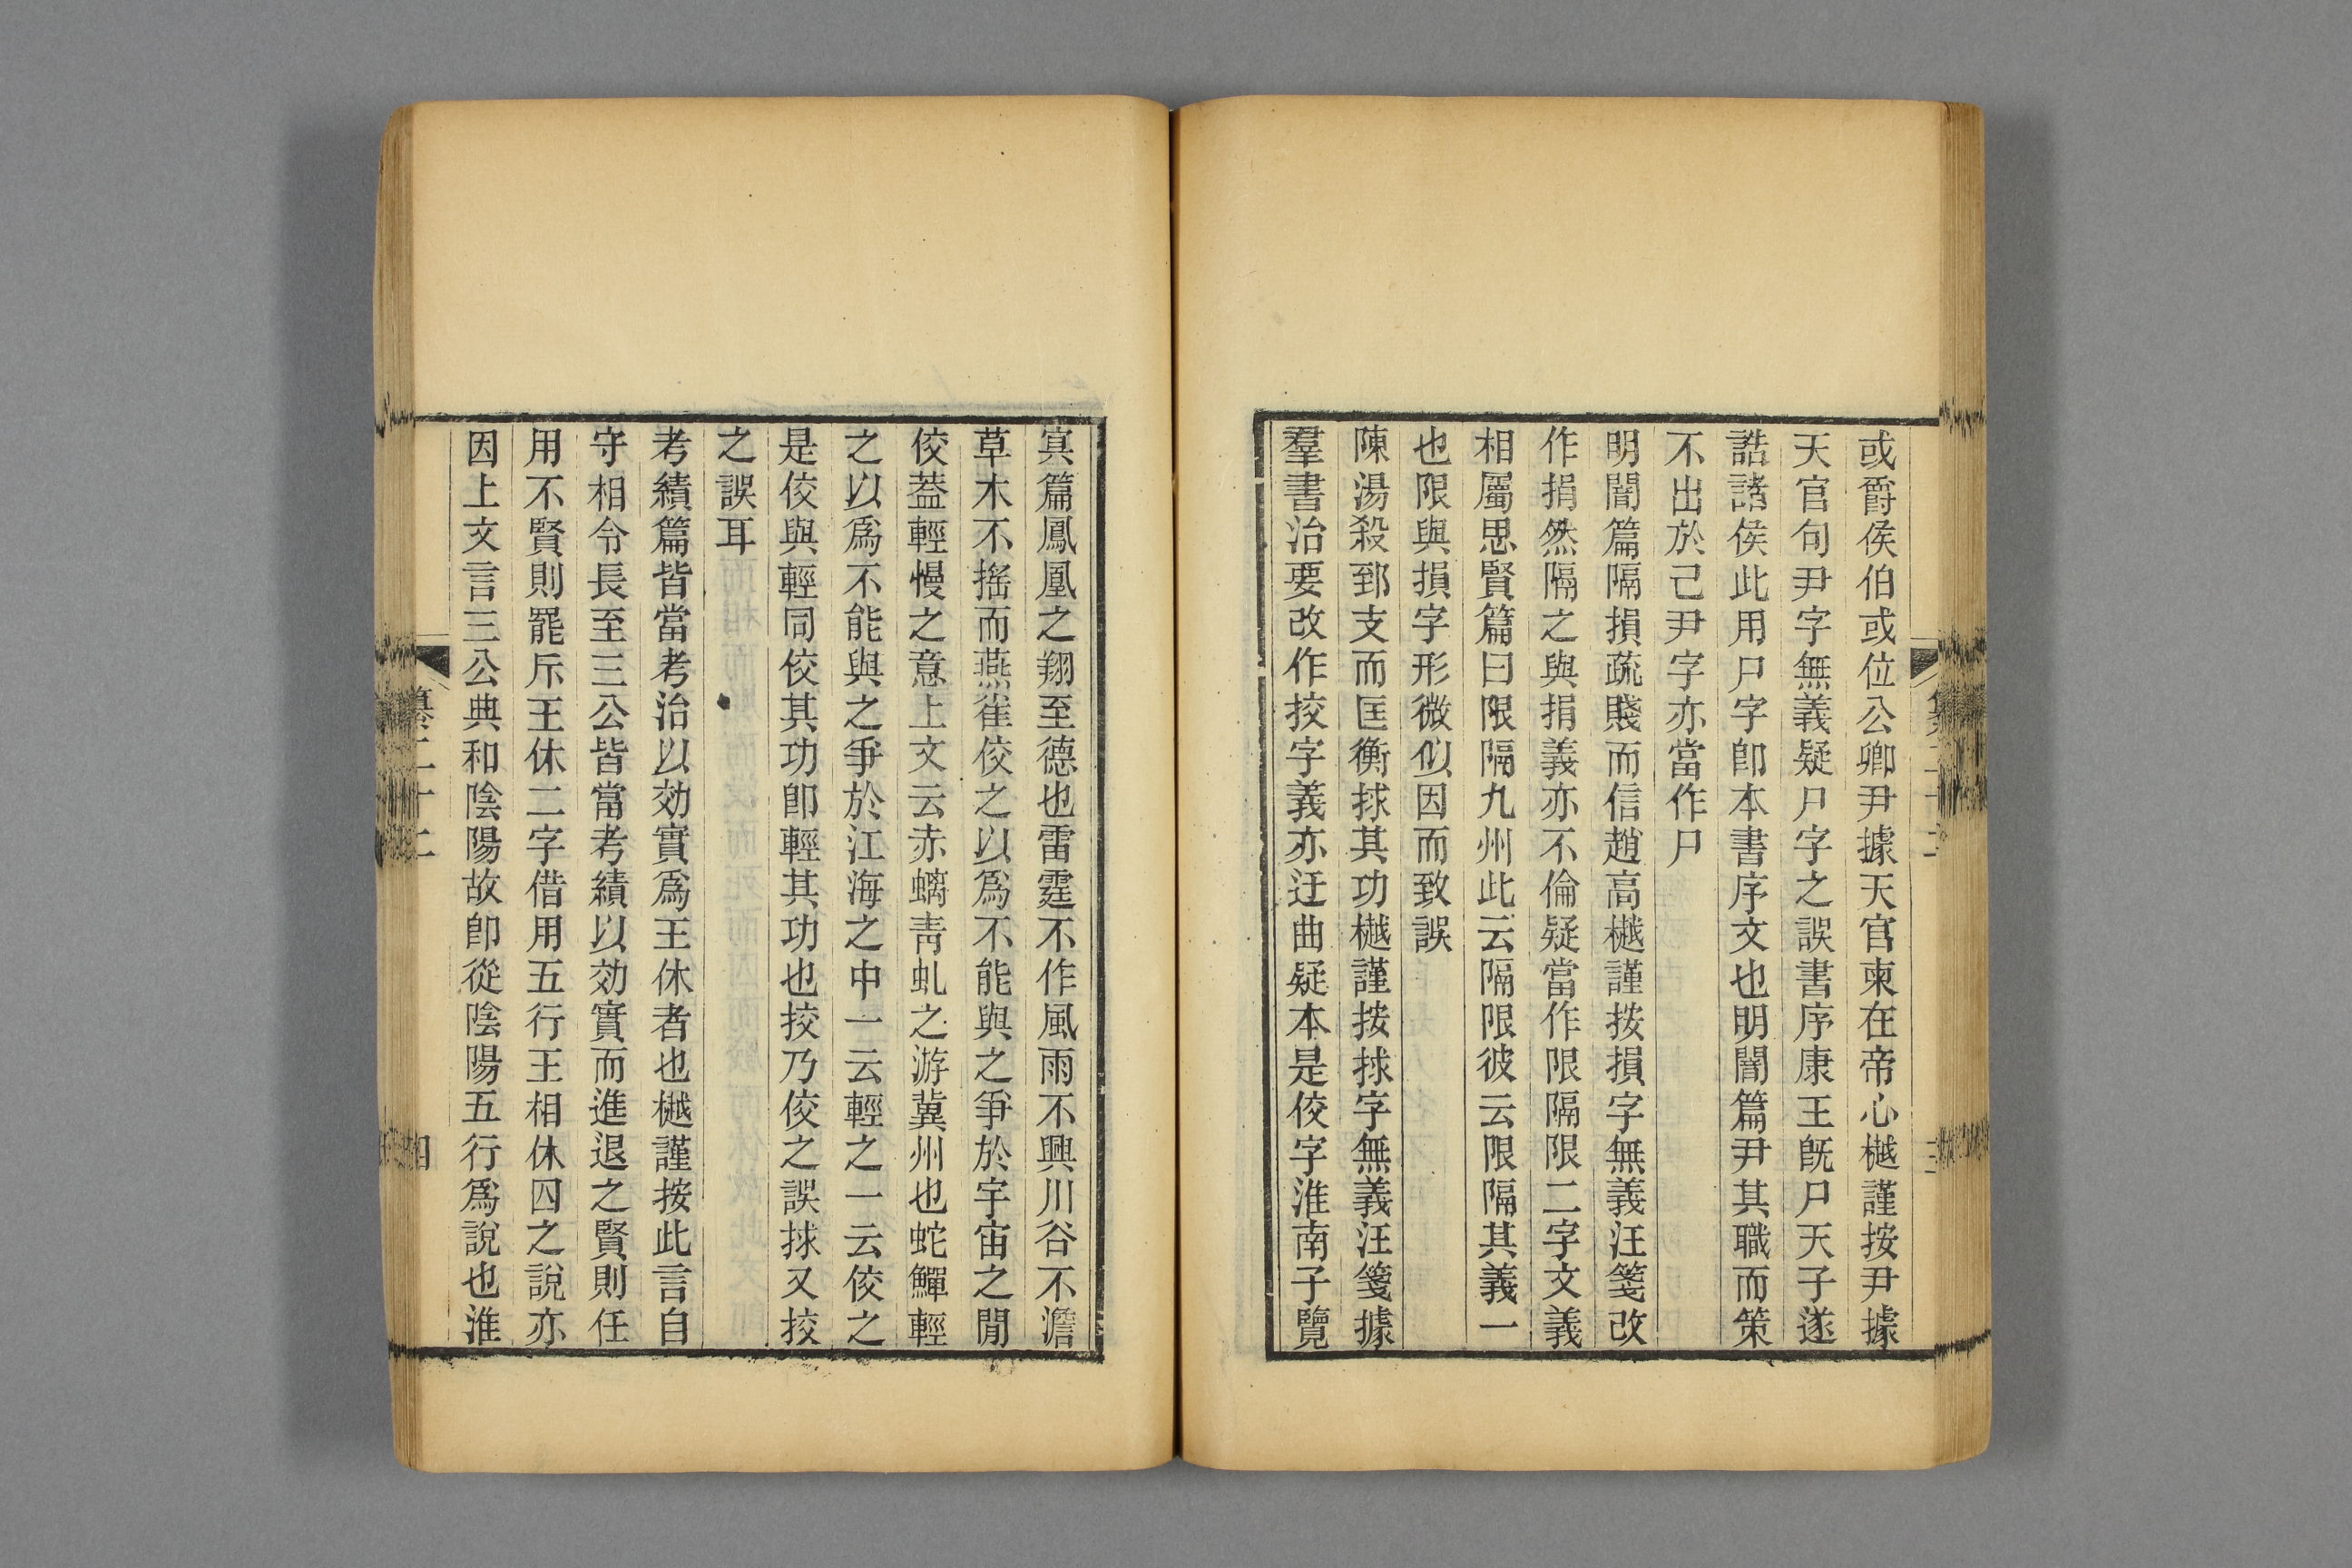 或爵侯伯或位公卿尹據天官柬在帝心樾謹按尹據
天官句尹字無義疑尸字之誤書序康王旣尸天子遂
誥諸侯此用尸字卽本書序文也明闇篇尹其職而策
不出於己尹字亦當作尸
明闇篇隔損疏賤而信趙高樾謹按損字無義汪箋改
作捐然隔之與捐義亦不倫疑當作限隔限二字文義
相屬思賢篇曰限隔九州此云隔限彼云限隔其義一
也限與損字形微似因而致誤
陳湯殺郅支而匡衡捄其功樾謹按捄字無義汪箋據
羣書治要改作挍字義亦迂曲疑本是佼字淮南子覽
冥篇鳳凰之翔至德也雷霆不作風雨不興川谷不澹
草木不搖而燕雀佼之以爲不能與之爭於宇宙之閒
佼葢輕慢之意上文云赤螭靑虬之游冀州也蛇鱓輕
之以爲不能與之爭於江海之中一云輕之一云佼之
是佼與輕同佼其功卽輕其功也挍乃佼之誤捄又挍
之誤耳
考績篇皆當考治以効實爲王休者也樾謹按此言自
守相令長至三公皆當考績以効實而進退之賢則任
用不賢則罷斥王休二字借用五行王相休囚之說亦
因上文言三公典和陰陽故卽從陰陽五行爲說也淮
纂二十二
四